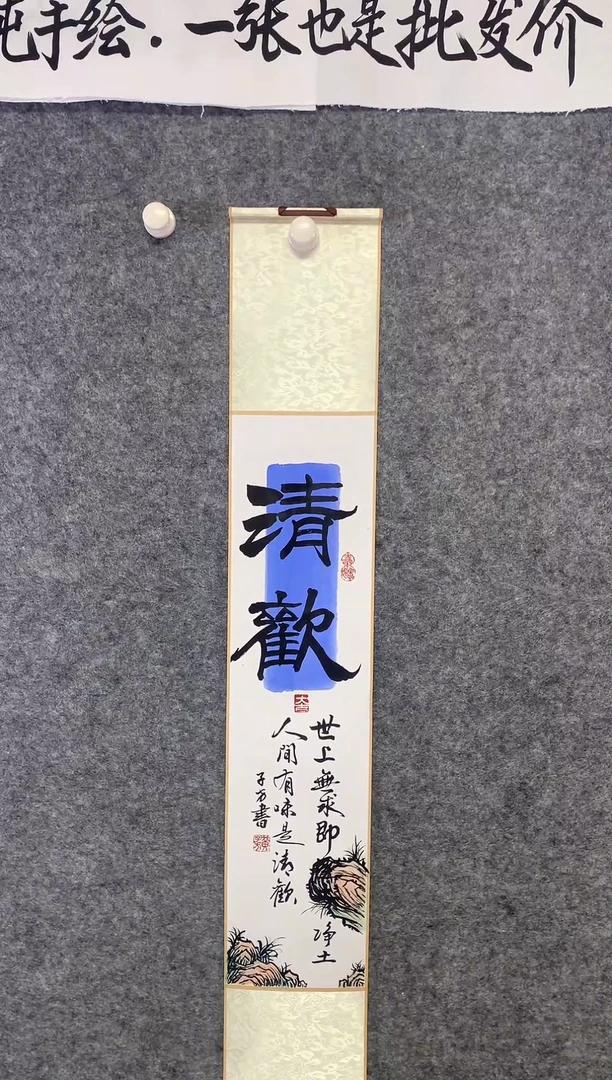 纯手绘.一张也是批发价
清歡
世上無求即 淨土
人間有味是清歡
子方書